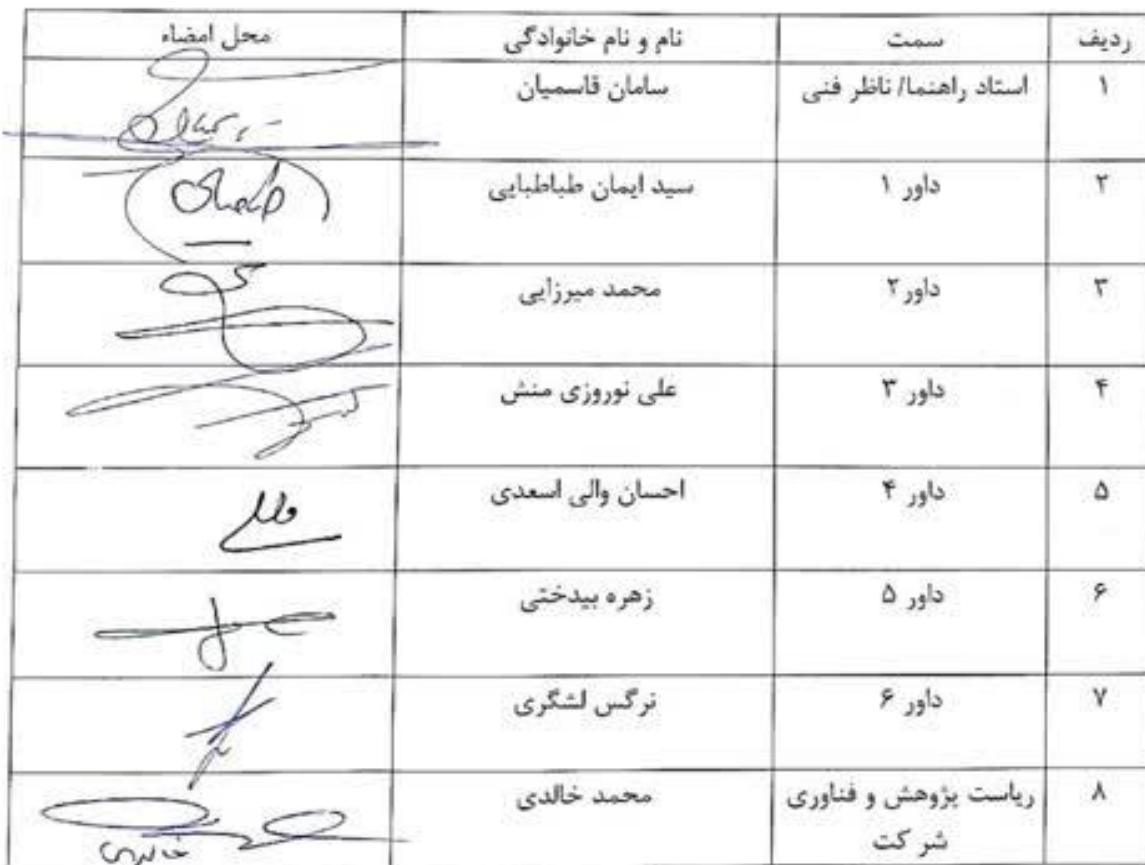 ردیف سمت نام و نام خانوادگی محل امضاء
۱ استاد راهنما/ ناظر فنی سامان قاسمیان
۲ داور ۱ سید ایمان طباطبایی
۳ داور ۲ محمد میرزایی
۴ داور ۳ علی نوروزی منش
۵ داور ۴ احسان والی اسعدی
۶ داور ۵ زهره بیدختی
۷ داور ۶ نرگس لشگری
۸ ریاست پژوهش و فناوری محمد خالدی
شرکت